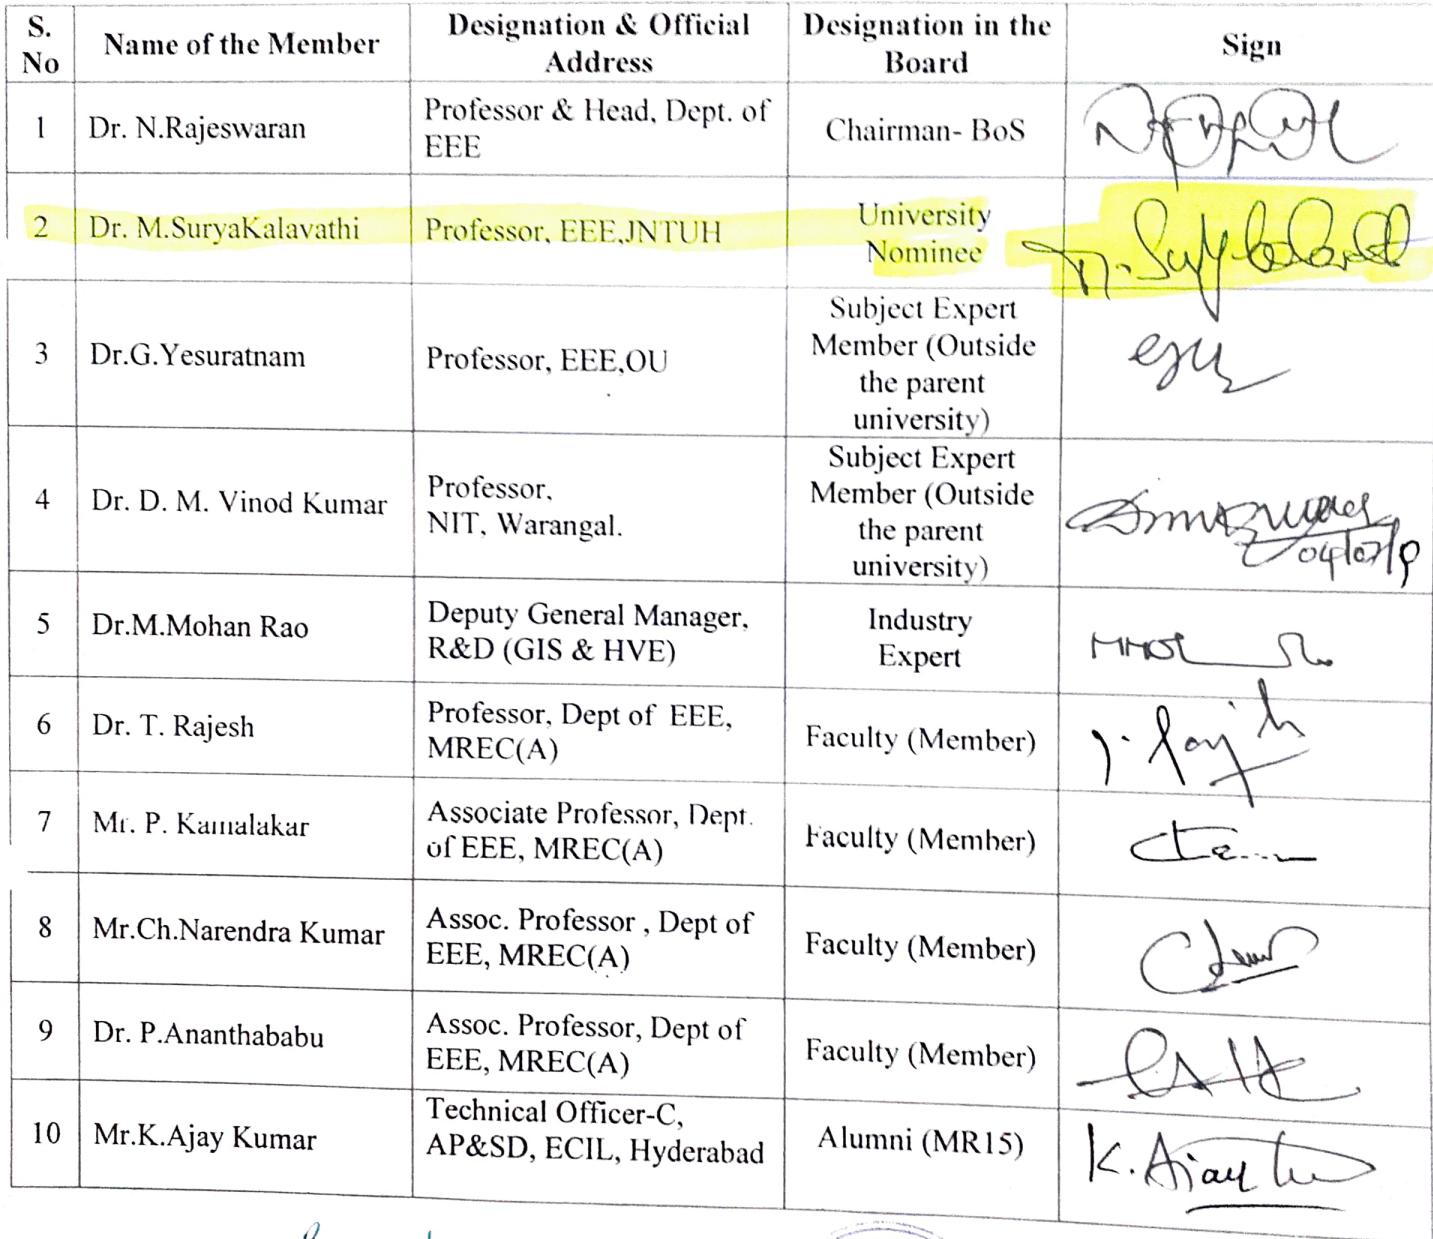 S. No Name of the Member Designation & Official Address Designation in the Board Sign
1 Dr. N.Rajeswaran Professor & Head, Dept. of EEE Chairman- BoS
2 Dr. M.SuryaKalavathi Professor, EEE,JNTUH University Nominee
3 Dr.G.Yesuratnam Professor, EEE,OU Subject Expert Member (Outside the parent university)
4 Dr. D. M. Vinod Kumar Professor, NIT, Warangal. Subject Expert Member (Outside the parent university)
5 Dr.M.Mohan Rao Deputy General Manager, R&D (GIS & HVE) Industry Expert
6 Dr. T. Rajesh Professor, Dept of EEE, MREC(A) Faculty (Member)
7 Mr. P. Kamalakar Associate Professor, Dept. of EEE, MREC(A) Faculty (Member)
8 Mr.Ch.Narendra Kumar Assoc. Professor , Dept of EEE, MREC(A) Faculty (Member)
9 Dr. P.Ananthababu Assoc. Professor, Dept of EEE, MREC(A) Faculty (Member)
10 Mr.K.Ajay Kumar Technical Officer-C, AP&SD, ECIL, Hyderabad Alumni (MR15) K. Ajay